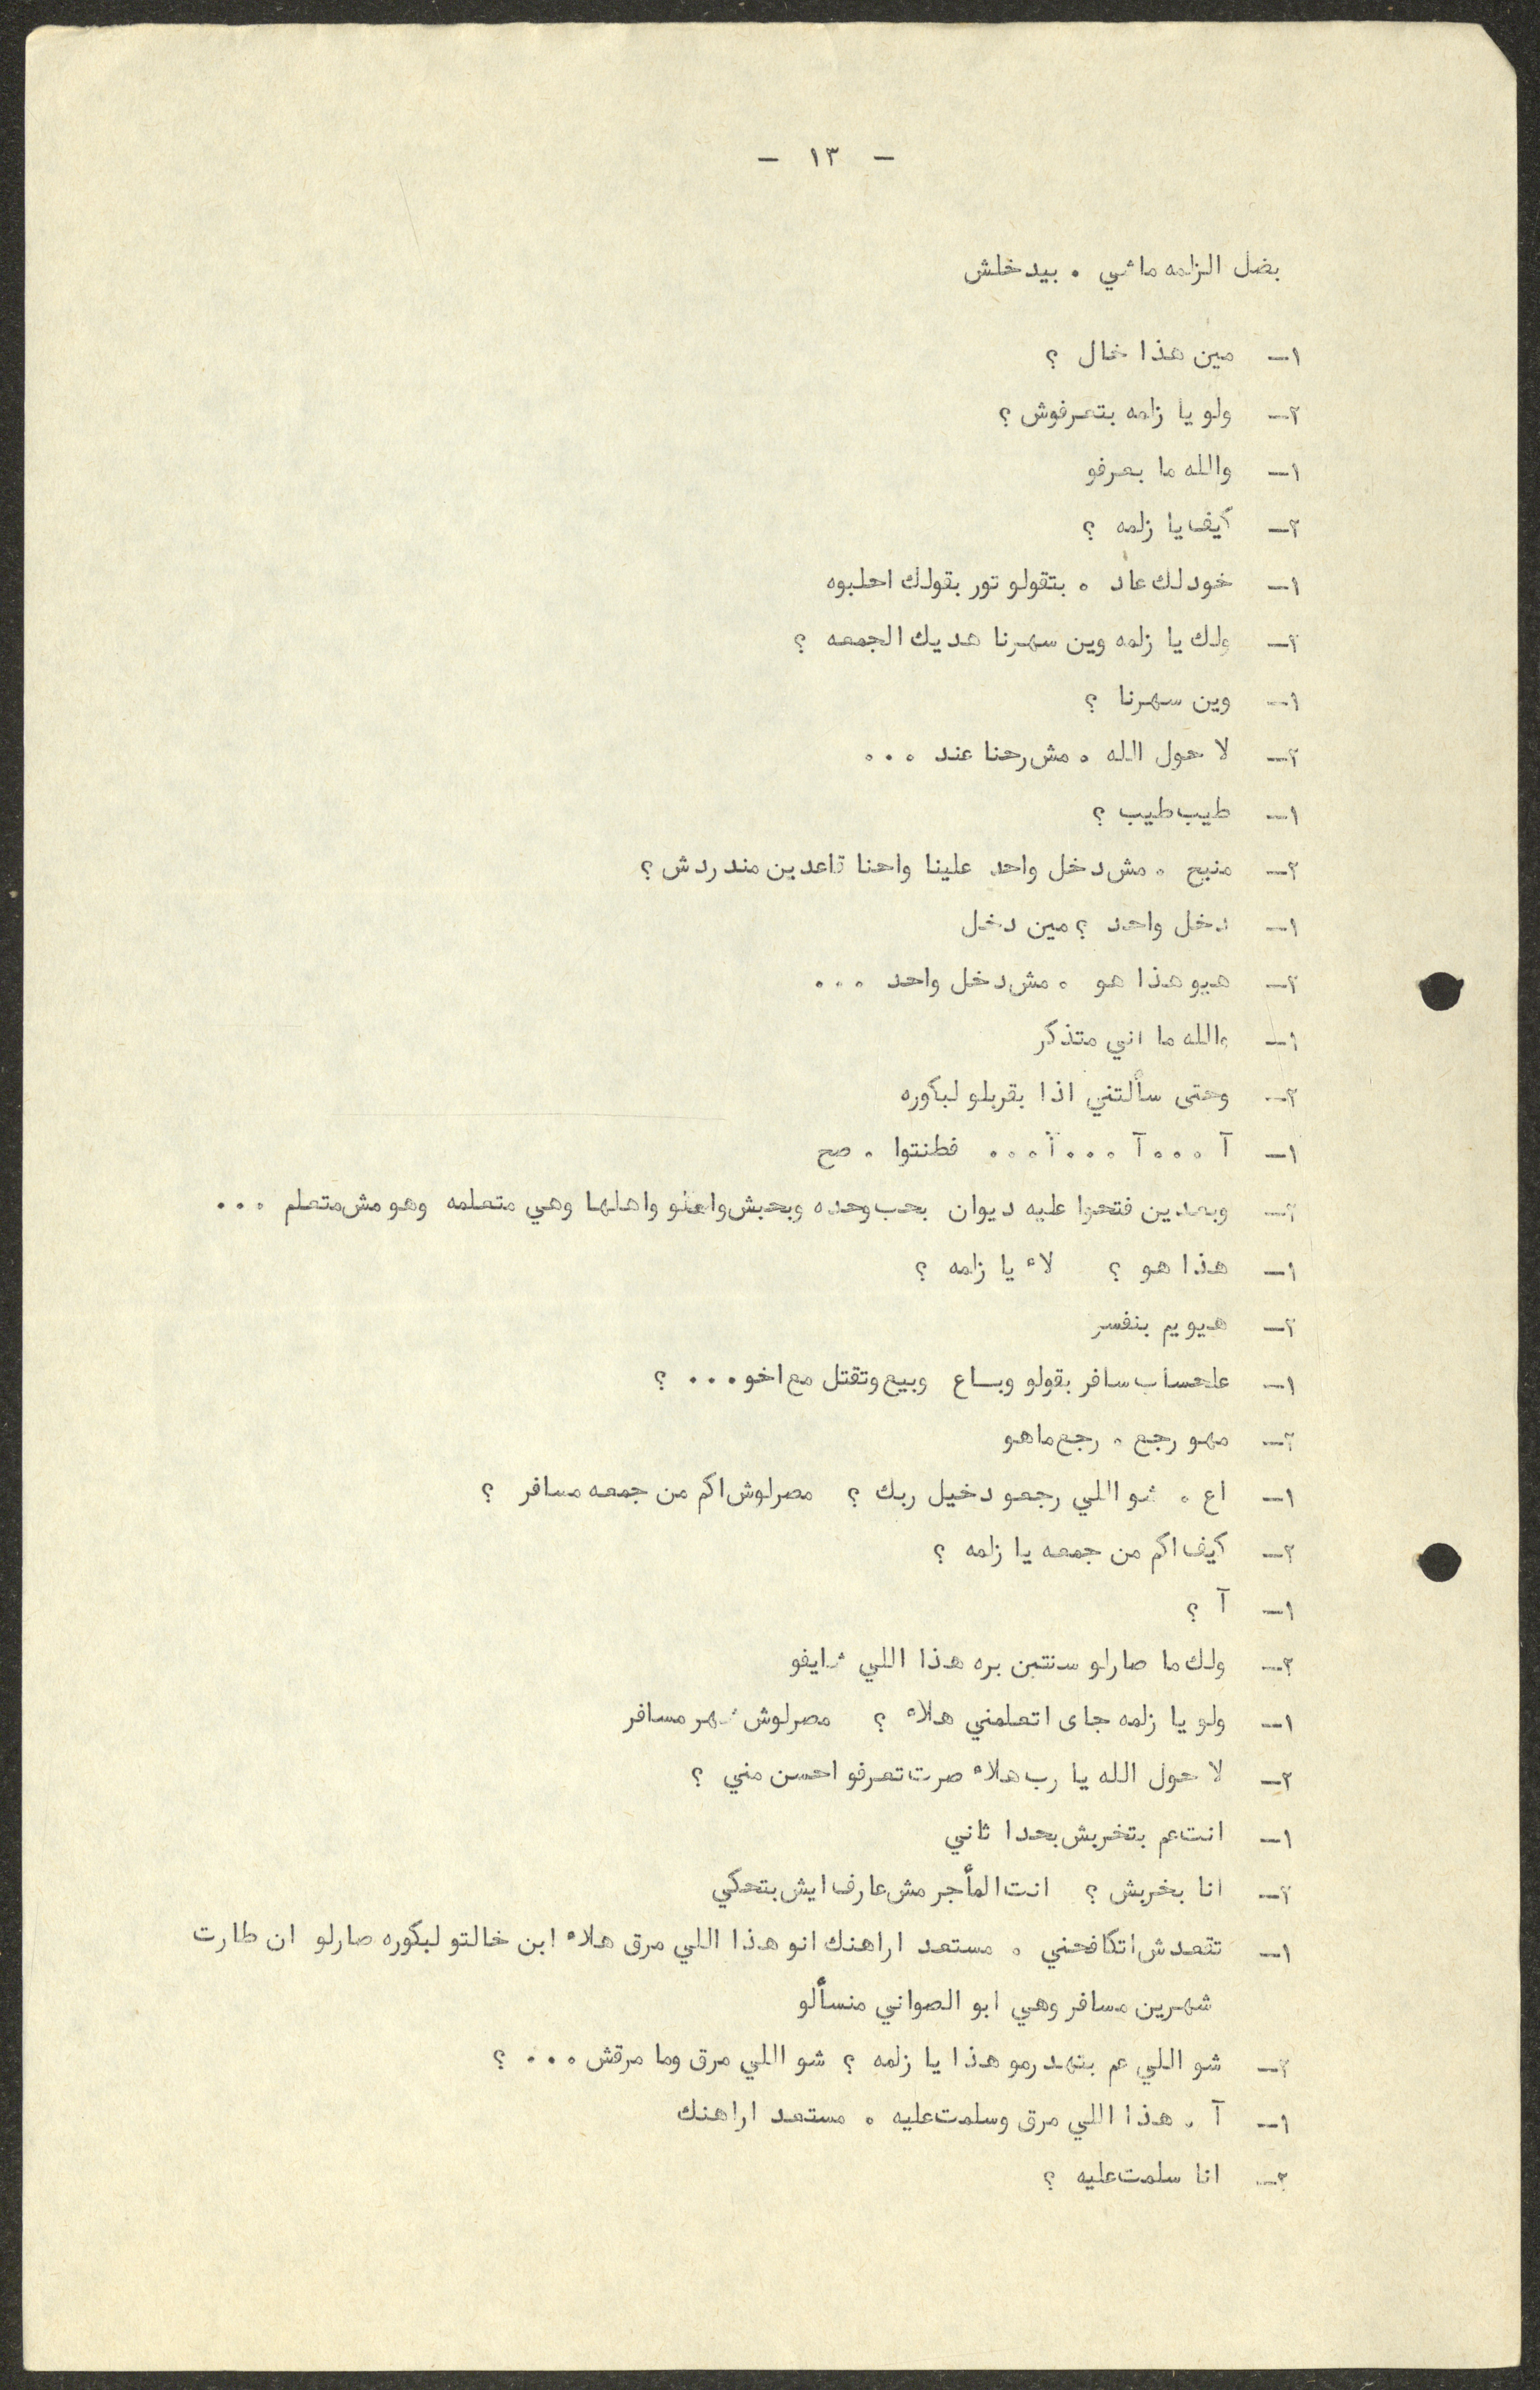 - ١٣ -
بضل الزلمه ماشي . بيدخلش
١- مين هذا خال ؟
٢- ولو يا زلمه بتعرفوش ؟
١- والله ما بعرفو
٢- كيف يا زلمه ؟
١- خود لك عاد . بتقولو تور بقولك احلبوه
٢- ولك يا زلمه وين سهرنا هديك الجمعه ؟
١- وين سهرنا ؟
٢- لا حول الله . مش رحنا عند ...
١- طيب طيب ؟
٢- منيح . مش دخل واحد علينا واحنا قاعدين مندردش ؟
١- دخل واحد ؟ مين دخل
٢- هيو هذا هو . مش دخل واحد ...
١- والله ما اني متذكر
٢- وحتى سألتني اذا بقربلو لبكوره
١- آ ... آ ... آ ... فطنتوا . صح
٢- وبعدين فتحوا عليه ديوان بحب وحده وبحبش واهلو واهلها وهي متعلمه وهو مش متعلم ...
١- هذا هو ؟ لاء يا زلمه ؟
٢- هيويم بنفسر
١- علحساب سافر بقولو وبساع وبيع وتقتل مع اخو ... ؟
٢- مهو رجع . رجع ما هو
١- اع . شو اللي رجعو دخيل ربك ؟ مصرلوش اكم من جمعه مسافر ؟
٢- كيف اكم من جمعه يا زلمه ؟
١- آ ؟
٢- ولك ما صارلو سنتين بره هذا اللي شايفو
١- ولو يا زلمه جاى اتعلمني هلاء ؟ مصرلوش شهر مسافر
٢- لا حول الله يا رب هلاء صرت تعرفو احسن مني ؟
١- انت عم بتخربش بحدا ثاني
٢- انا بخربش ؟ انت المأجر مش عارف ايش بتحكي
١- تقعدش اتكافحني . مستعد اراهنك انو هذا اللي مرق هلاء ابن خالتو لبكوره صارلو ان طارت
شهرين مسافر وهي ابو الصواني منسألو
٢- شو اللي عم بتهدرمو هذا يا زلمه ؟ شو اللي مرق وما مرقش ... ؟
١- آ . هذا اللي مرق وسلمت عليه . مستعد اراهنك
٢- انا سلمت عليه ؟